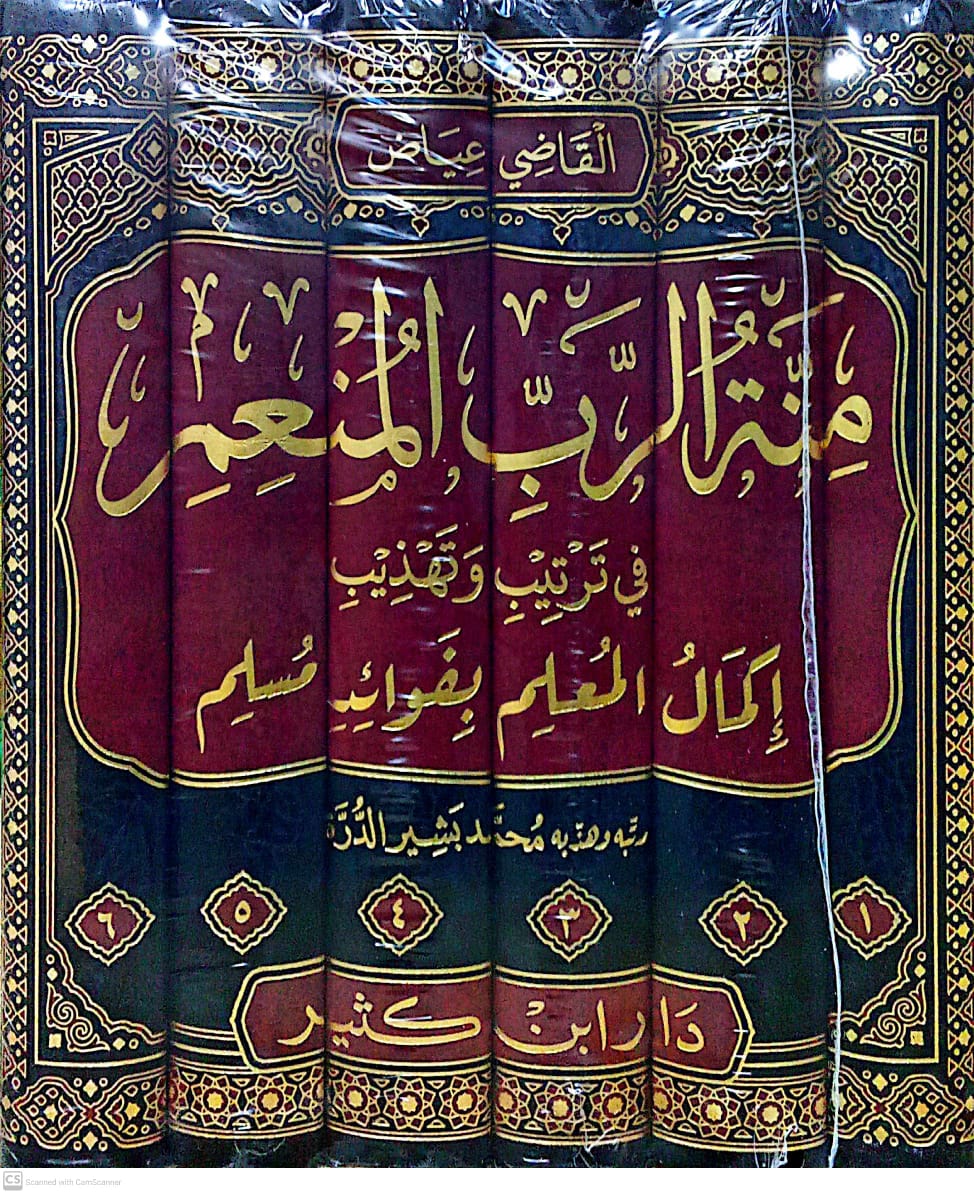 الْقَاضِي عِيَاض
مِنَّةُ الرَّبِّ الْمُنْعِمِ
فِي تَرْتِيْبِ وَتَهْذِيْبِ
إِكمَالُ المُعلِم بِفَوائِدِ مُسلِم
رتبه وهذبه مُحمَّد بَشِير الدُّرَّة
١ ٢ ٣ ٤ ٥ ٦
دَار ابنْ كثير
CS Scanned with CamScanner